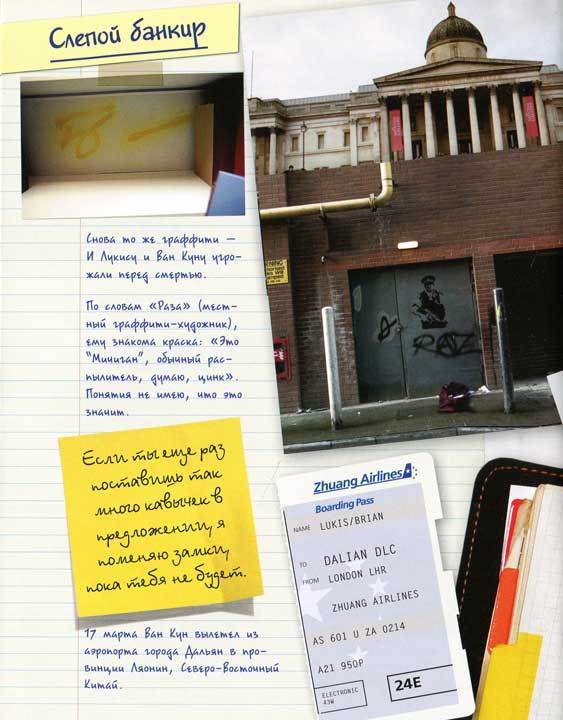 Слепой банкир
Снова то же граффити —
И Лукису и Ван Куну угро-
жали перед смертью.
По словам «Раза» (мест-
ный граффити-художник),
ему знакома краска: «Это
"Мичиган", обычный рас-
пылитель, думаю, цинк».
Понятия не имею, что это
значит.
Если ты еще раз
поставишь так
много кавычек в
предложении, я
поменяю замки,
пока тебя не будет.
17 марта Ван Кун вылетел из
аэропорта города Дальян в про-
винции Ляонин, Северо-Восточный
Китай.
RAZ
Zhuang Airlines
Boarding Pass
NAME LUKIS/BRIAN
TO DALIAN DLC
FROM LONDON LHR
ZHUANG AIRLINES
AS 601 U ZA 0214
A21 950P
ELECTRONIC
43W
24E